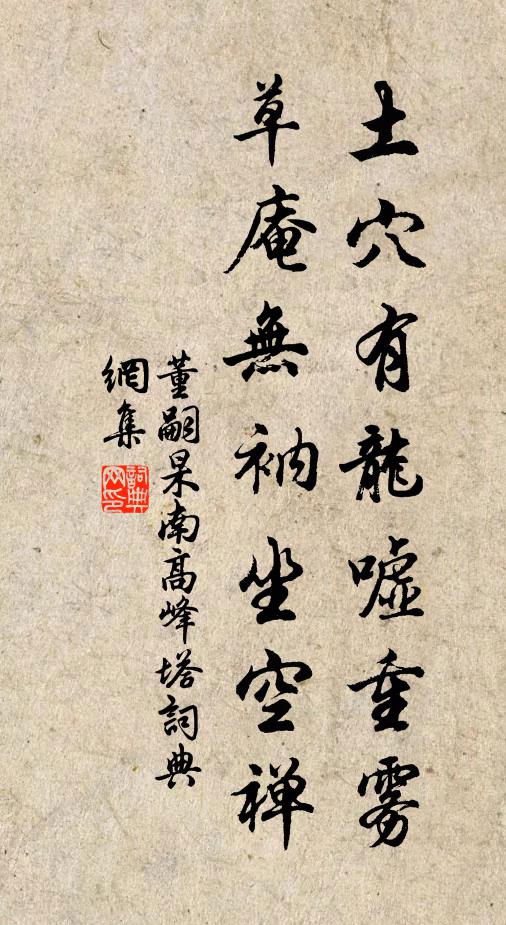 土穴有龍噓重霧
草庵無衲坐空禅
董嗣杲南高峰塔詞典
網集
詞典網印